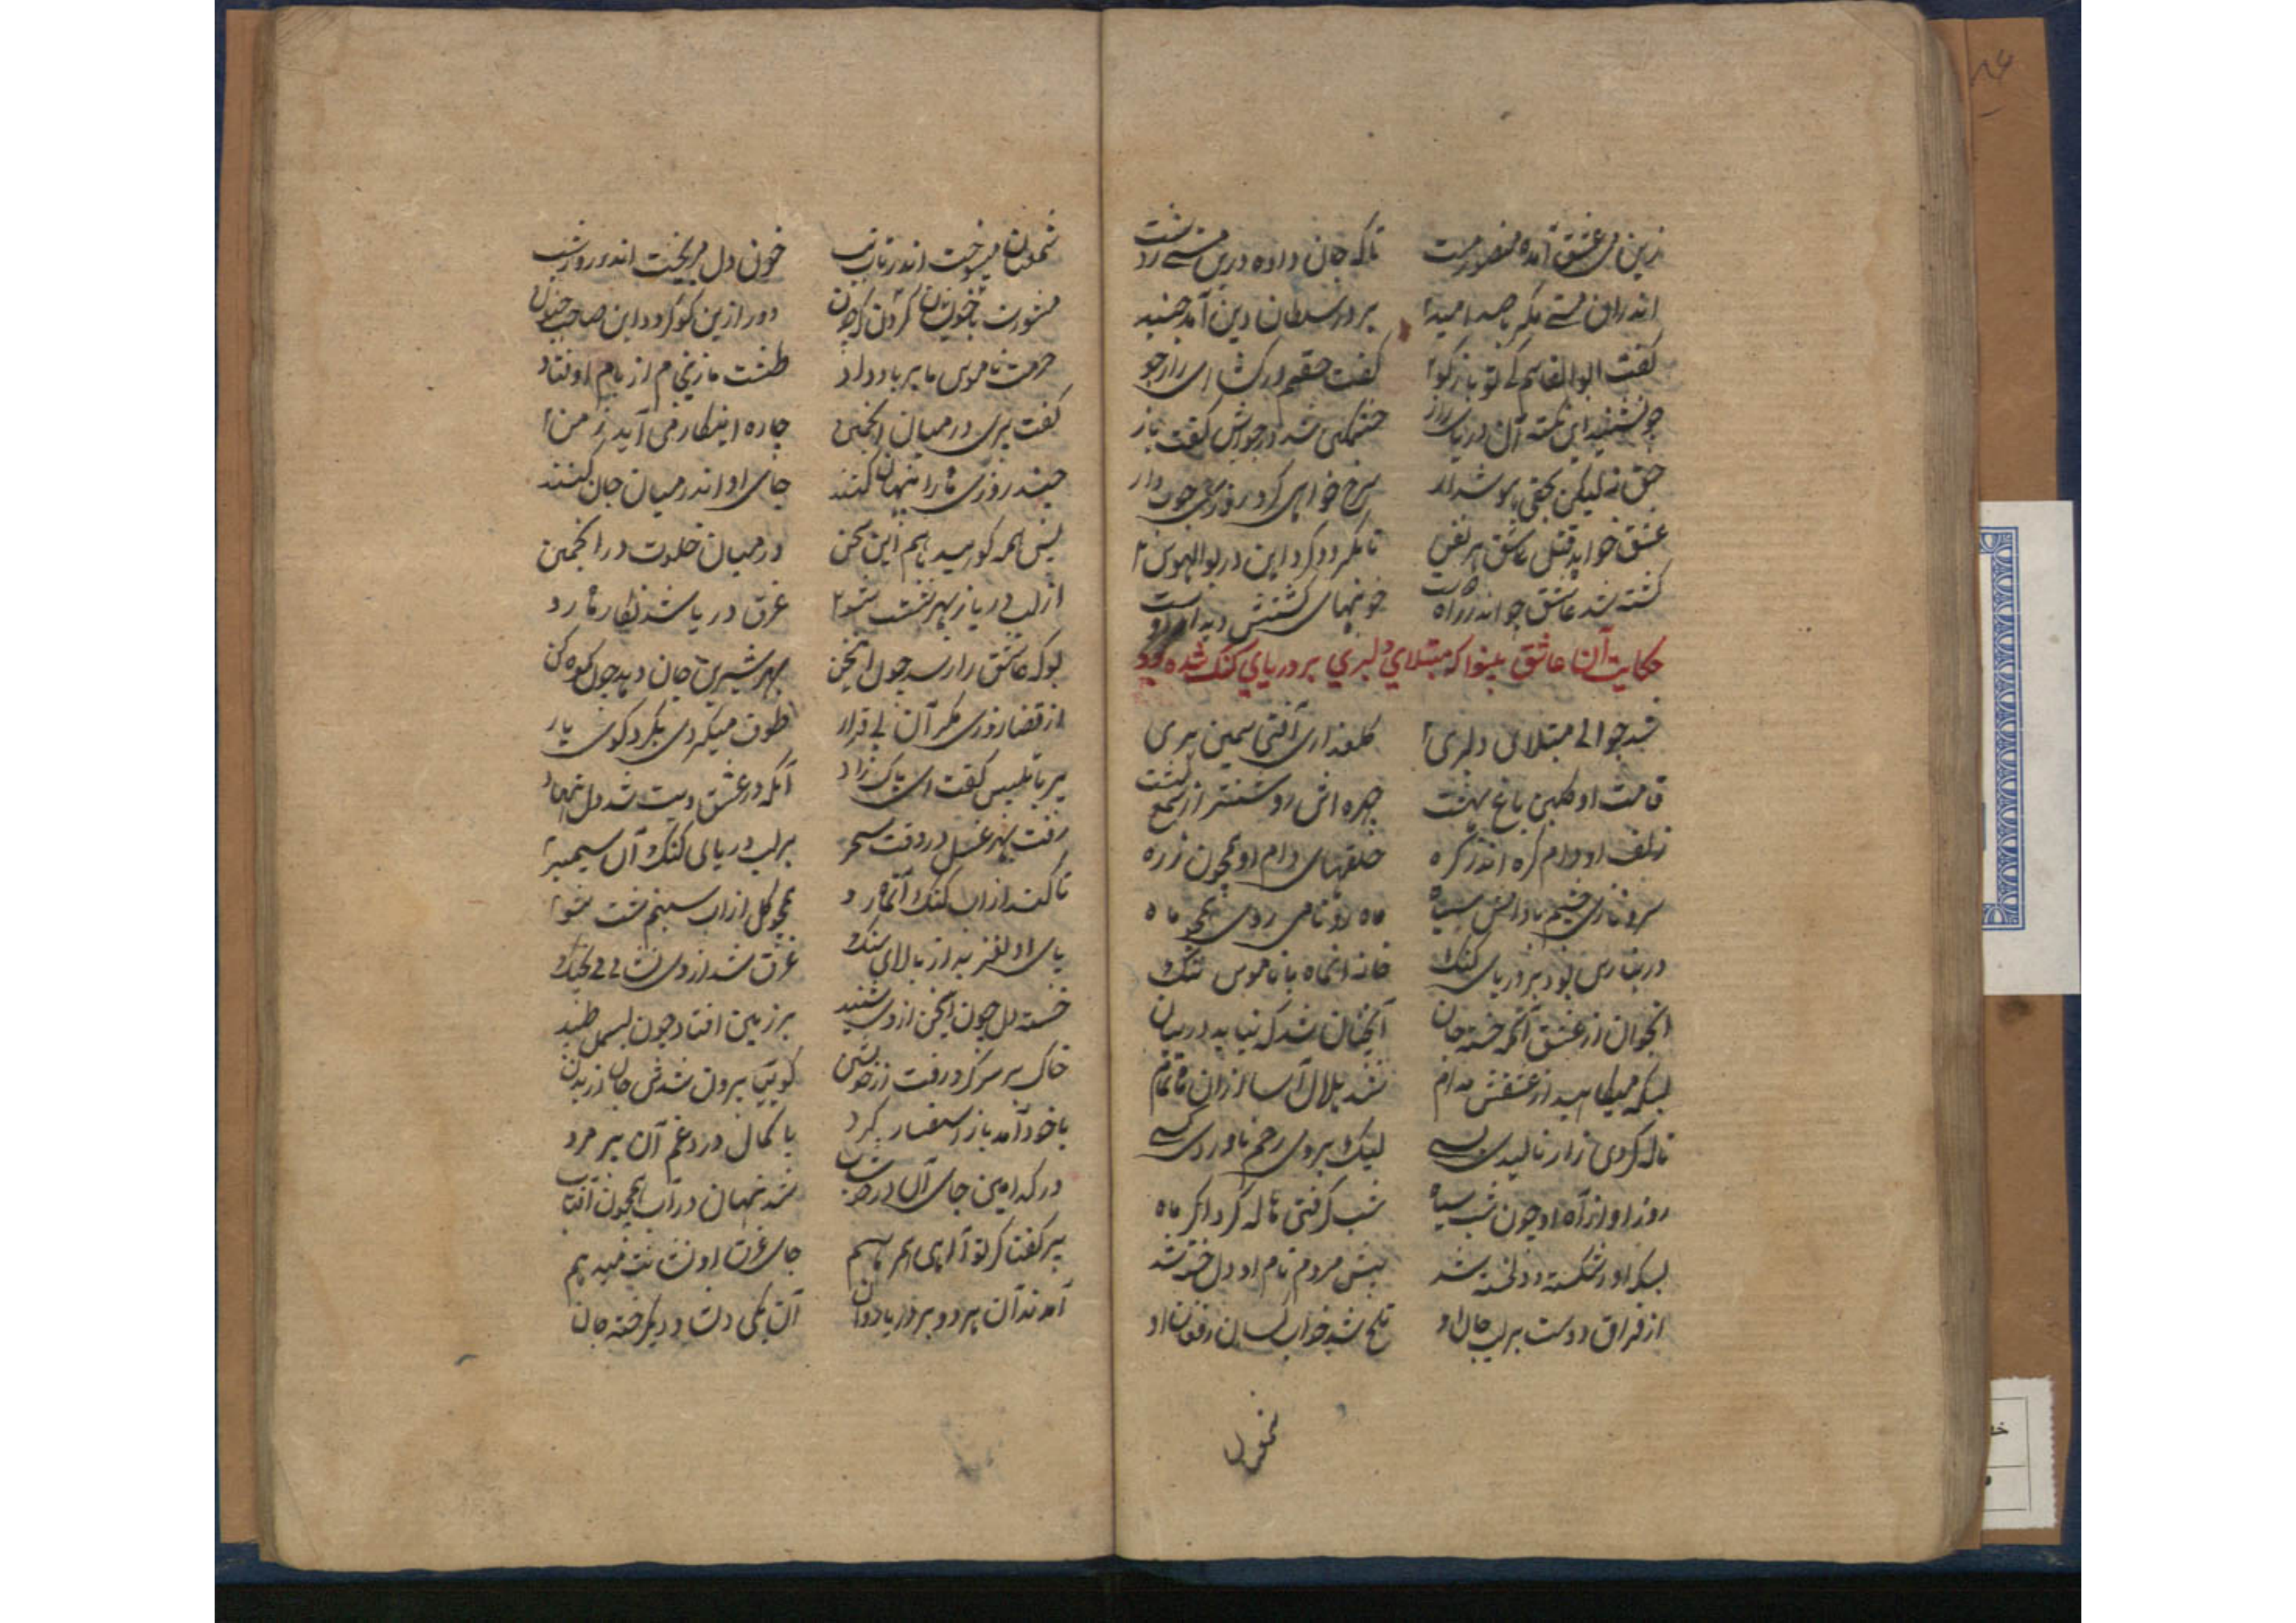 زین می عشق آمده منصور مست تا که جان داده درین مستی ز دست
اندران مستی مگر با صد امید بر در سلطان دین آمد جنید
گفت ابوالقاسم کئ تو باز گو گفت حقم در کشا ای راز جو
چو شنید این نکته آن دریای راز خشمگین شد در جوابش گفت باز
حق نه لیکن بحق با هوش دار سرخ خواهی کرد روزی چوب دار
عشق خواهد قتل عاشق هر نفس تا نگردد گرد این در بوالهوس
کشته شد عاشق چو اندر راه خونبهای کشتنش دیدار
حکایت آن عاشق بینوا که مبتلای دلبری بر دریای کنک شده بود
شد جوانی مبتلای دلبری گلعذاری آفتی سیمین بری
قامت او گلبن باغ بهشت چهره اش روشنتر از شمع کنشت
زلف او دام گره اندر گره حلقهای دام او همچون زره
سرو نازی چشم بادامش سیاه ماه رو نامی روی همچو ماه
در بنارس بود بر دریای کنک خانه انماه با ناموس ننک
انجوان از عشق آنمه خسته جان آنچنان شد که نیاید در بیان
بسکه میکاهید از عشقش مدام شد هلال آسا ازان ماه تمام
ناله کردی زار نالیدی بسی لیک بر وی رحم ناوردی کسی
روز او از آه او چون شب سیاه شب گرفتی ناله کرد اگر ماه
بسکه او اشکسته و دلخسته شد پیش مردم نام او دل خسته شد
از فراق دوست بر لب جان او تلخ شد خواب کسان ز افغان او
شمعسان میسوخت اندر تاب تب خون دل میریخت اندر روز شب
مشورت با خویشان کردن که چون دور ازین کو گردد این صاحب جنون
حرمت ناموس ما بر باد داد طشت ما زنجام از بام اوفتاد
گفت پیری در میان انجمن چاره اینکار می آید ز من
چند روزی ماه را پنهان کنند جای او اندر میان جان کنند
پس همه گوئید باهم این سخن در میان خلوت در انجمن
از لب دریا ز بهر شست شو غرق دریا شد نگار ماه رو
بوکه عاشق را رسد چون این سخن بهر شیرین جان دهد چون کوهکن
از قضا روزی مگر آن بی قرار طوف میکردی بگرد کوی یار
پیر با تلبیس گفت ای پاک زاد آنکه در عشق ویت شد دل نهاد
رفت بهر غسل در وقت سحر بر لب دریای کنک آن سیمبر
تا کند از اب کنک آنماه رو همچو گل از اب شبنم شست شو
پای او لغزید از بالای سنک غرق شد از وی نشانی نی بچنک
خسته دل چون این سخن از وی شنید بر زمین افتاد چون بسمل طپید
خاک بر سر کرد رفت از خویشتن گوئیا بیرون شدش جان از بدن
باخود آمد باز استفسار کرد با کمال درد و غم آن پیر مرد
در کدامین جای آن شد نهان در آب همچون آفتاب
پیر گفتا گر تو آئی همرهم جای غرق او نشانت میدهم
آمدند آن هر دو بر دریا دوان آن یکی دلشاد دیگر خسته جان